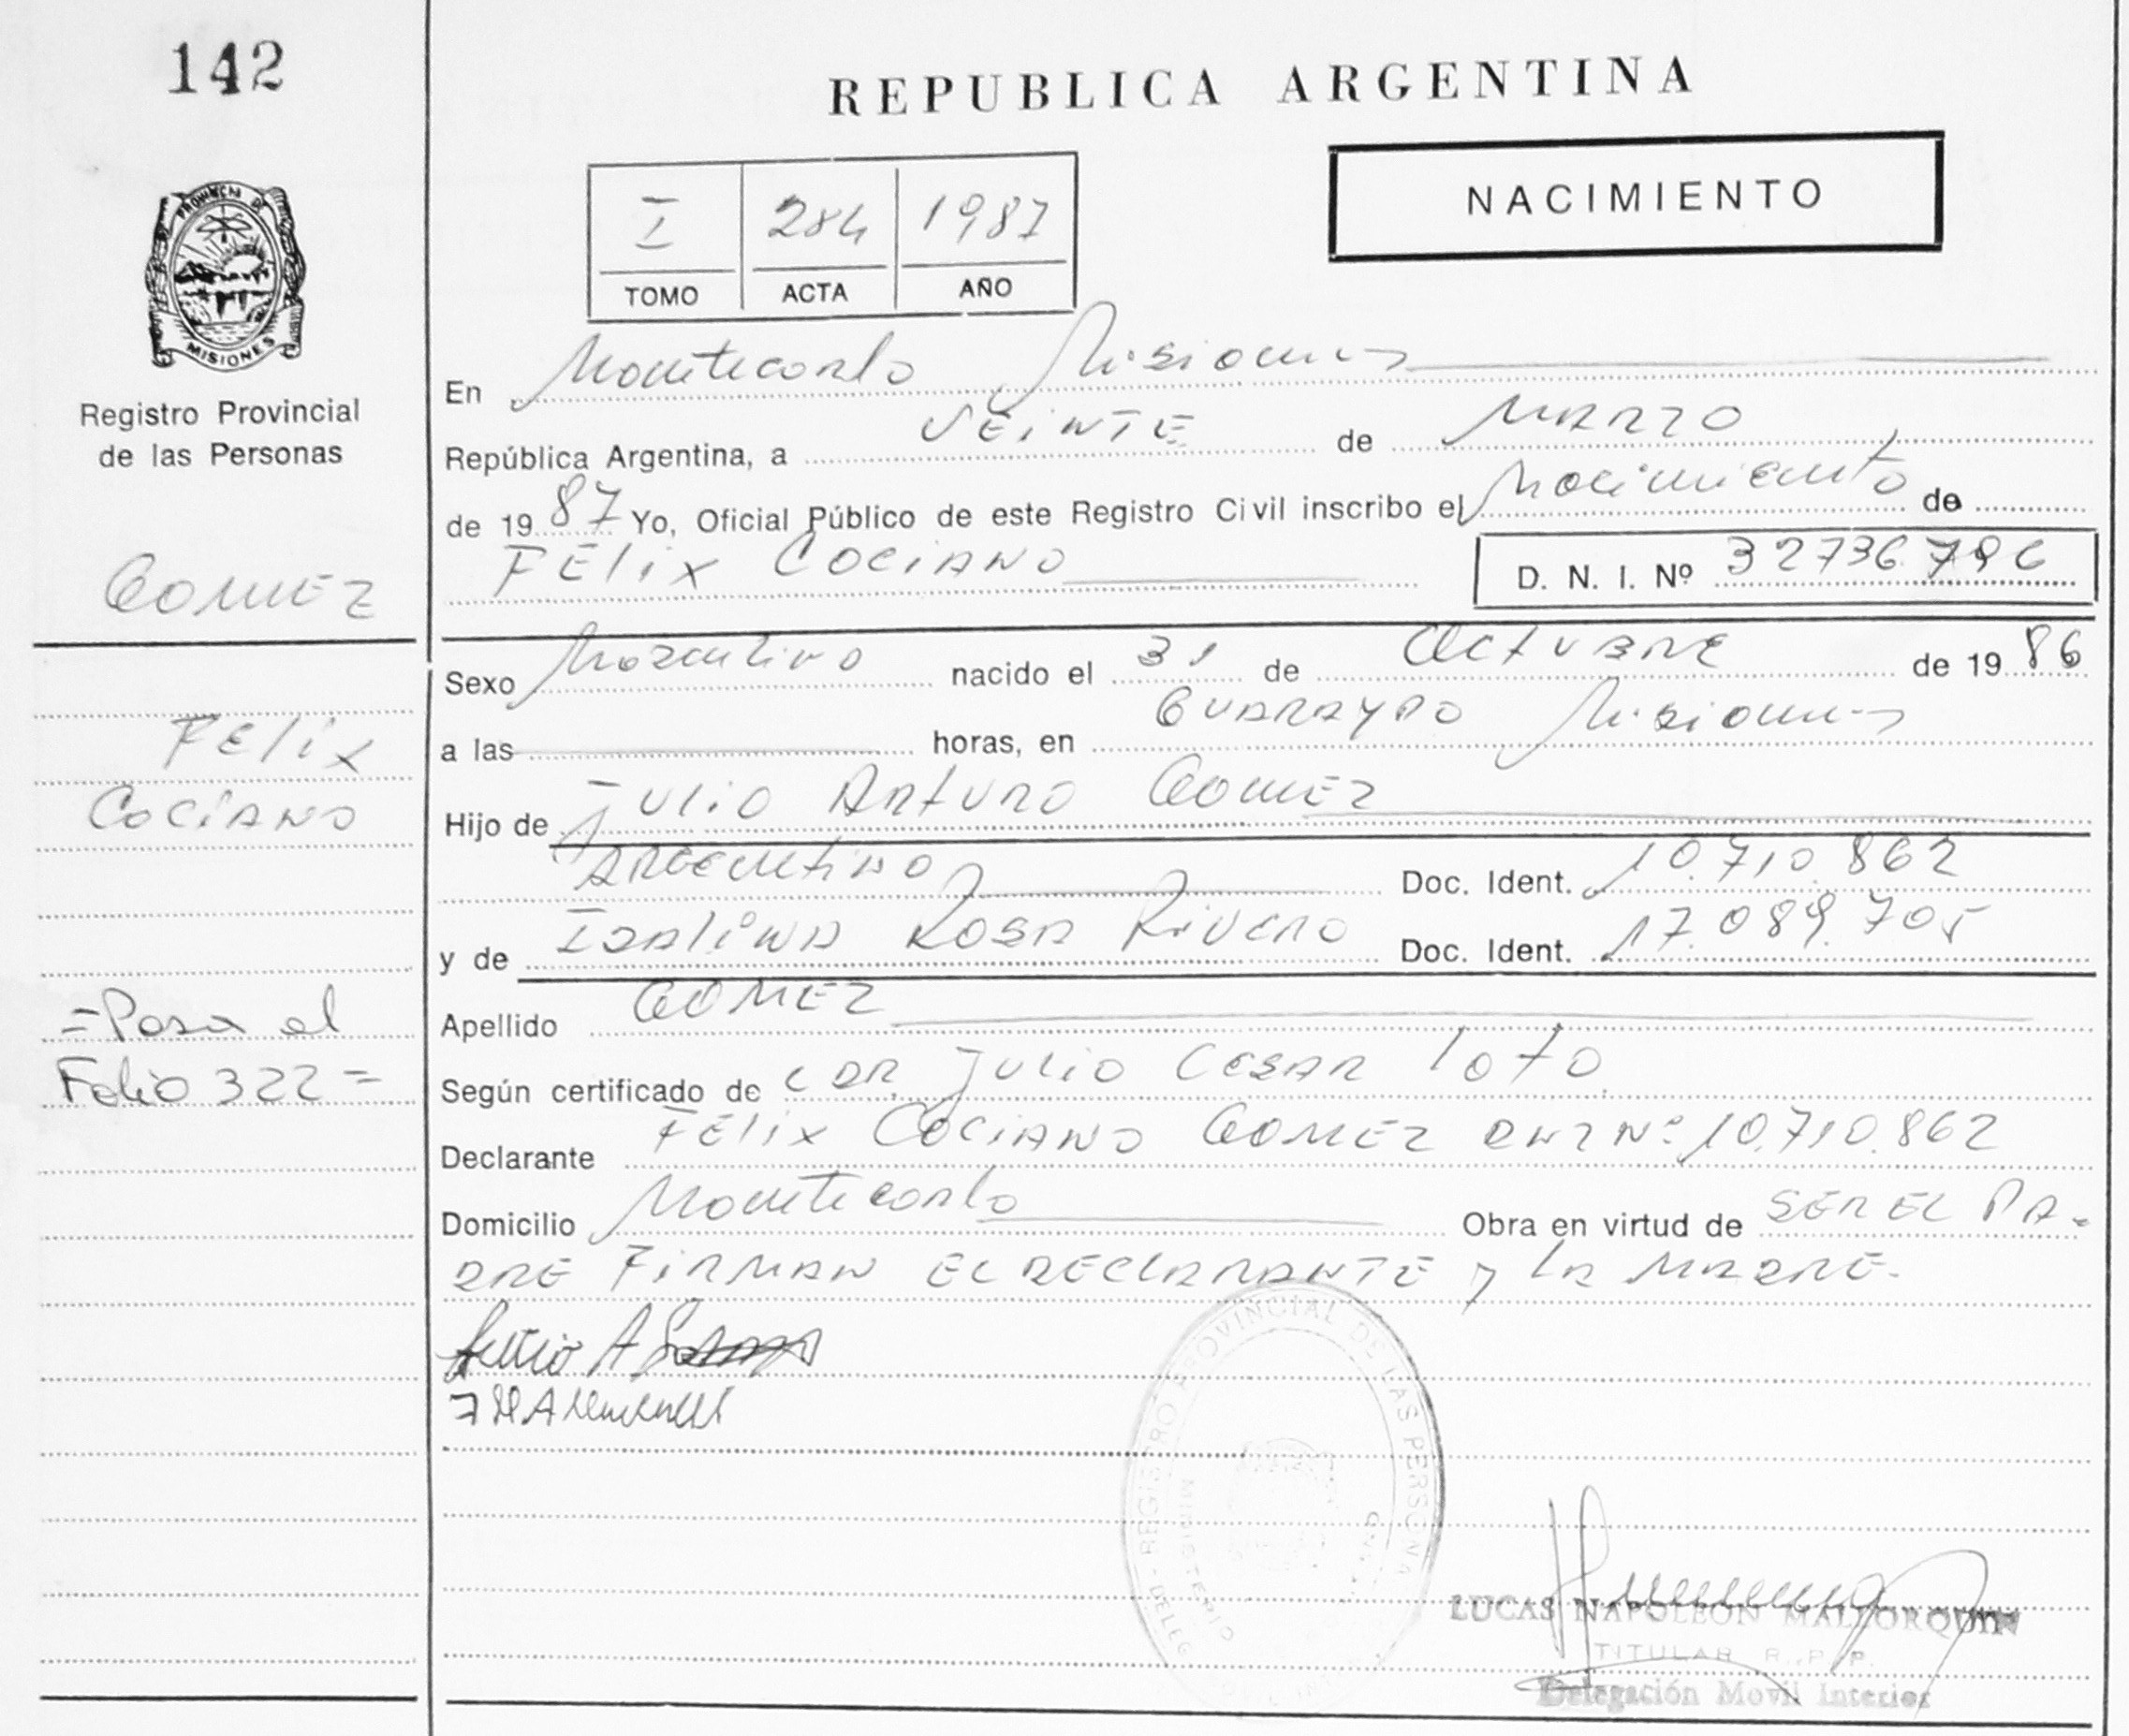 142
REPUBLICA ARGENTINA
NACIMIENTO
I 284 1987
TOMO ACTA AÑO
PROVINCIA DE
MISIONES
Registro Provincial
de las Personas
GOMEZ
FELIX
COCIANO
=Pasa al
Folio 322=
En Montecarlo Misiones
República Argentina, a VEINTE de MARZO
de 1987 Yo, Oficial Público de este Registro Civil inscribo el Nacimiento de
FELIX COCIANO D. N. I. Nº 32736796
Sexo Masculino nacido el 31 de OCTUBRE de 1986
a las horas, en GUARAYPO Misiones
Hijo de JULIO ARTURO GOMEZ
ARGENTINO Doc. Ident. 10.710.862
y de ISALINA ROSA RIVERO Doc. Ident. 17.089.705
Apellido GOMEZ
Según certificado de JULIO CESAR LOTO
Declarante FELIX COCIANO GOMEZ DNI Nº 10.710.862
Domicilio Montecarlo Obra en virtud de SER EL PA-
DRE FIRMAN EL DECLARANTE y LA MADRE.
REGISTRO PROVINCIAL DE LAS PERSONAS
LUCAS NAPOLEON MALLORQUIN
TITULAR R. P. P.
Delegación Movil Interior